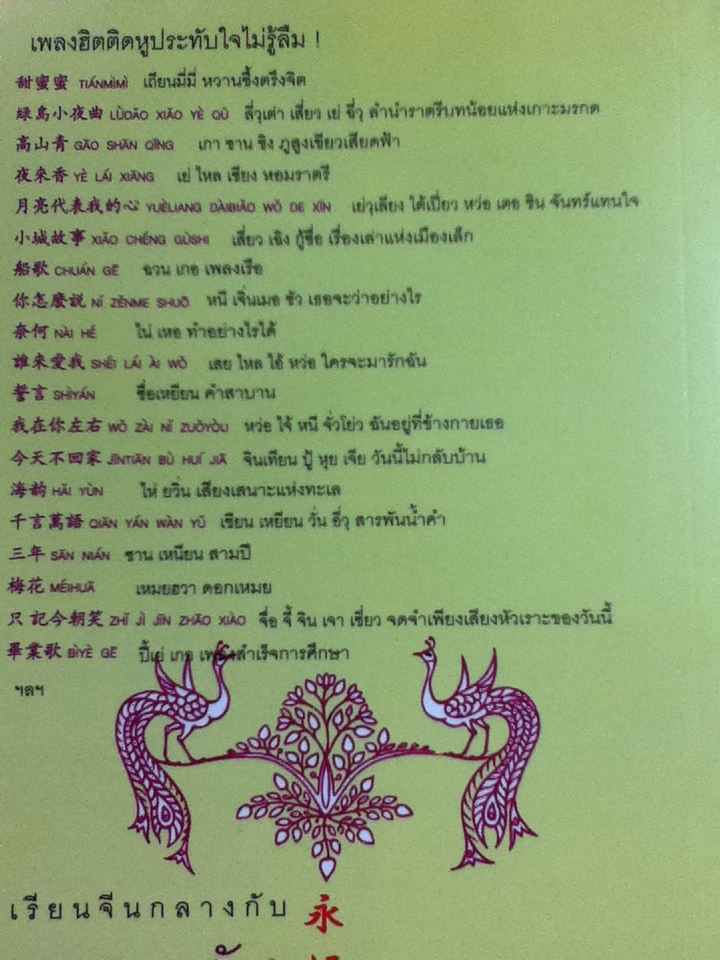 เพลงฮิตติดหูประทับใจไม่รู้ลืม !
甜蜜蜜 TIÁNMÌMÌ เถียนมี่มี่ หวานซึ้งตรึงจิต
綠島小夜曲 LǜDǍO XIǍO YÈ QǓ ลี่วุเต่า เสี่ยว เย่ ฉี่วุ ลำนำราตรีบทน้อยแห่งเกาะมรกต
高山青 GĀO SHĀN QĪNG เกา ซาน ชิง ภูสูงเขียวเสียดฟ้า
夜來香 YÈ LÁI XIĀNG เย่ ไหล เซียง หอมราตรี
月亮代表我的心 YUÈLIANG DÀIBIǍO WǑ DE XĪN เย่วุเลียง ไต้เปี่ยว หว่อ เตอ ซิน จันทร์แทนใจ
小城故事 XIǍO CHÉNG GÙSHI เสี่ยว เฉิง กู้ซื่อ เรื่องเล่าแห่งเมืองเล็ก
船歌 CHUÁN GĒ ฉวน เกอ เพลงเรือ
你怎麼說 NǏ ZĚNME SHUŌ หนี เจิ่นเมอ ซัว เธอจะว่าอย่างไร
奈何 NÀI HÉ ไน่ เหอ ทำอย่างไรได้
誰來愛我 SHÉI LÁI ÀI WǑ เสย ไหล ไอ้ หว่อ ใครจะมารักฉัน
誓言 SHÌYÁN ซื่อเหยียน คำสาบาน
我在你左右 WǑ ZÀI NǏ ZUǑYÒU หว่อ ไจ้ หนี จั่วโย่ว ฉันอยู่ที่ข้างกายเธอ
今天不回家 JĪNTIĀN BÙ HUÍ JIĀ จินเทียน ปู้ หุย เจีย วันนี้ไม่กลับบ้าน
海韵 HǍI YÙN ไห่ ยวิ่น เสียงเสนาะแห่งทะเล
千言萬語 QIĀN YÁN WÀN YǓ เชียน เหยียน วั่น อี่วุ สารพันน้ำคำ
三年 SĀN NIÁN ซาน เหนียน สามปี
梅花 MÉIHUĀ เหมยฮวา ดอกเหมย
只記今朝笑 ZHǏ JÌ JĪN ZHĀO XIÀO จื่อ จี้ จิน เจา เซี่ยว จดจำเพียงเสียงหัวเราะของวันนี้
畢業歌 BÌYÈ GĒ ปี้เย่ เกอ เพลงสำเร็จการศึกษา
ฯลฯ
เรียนจีนกลางกับ 永